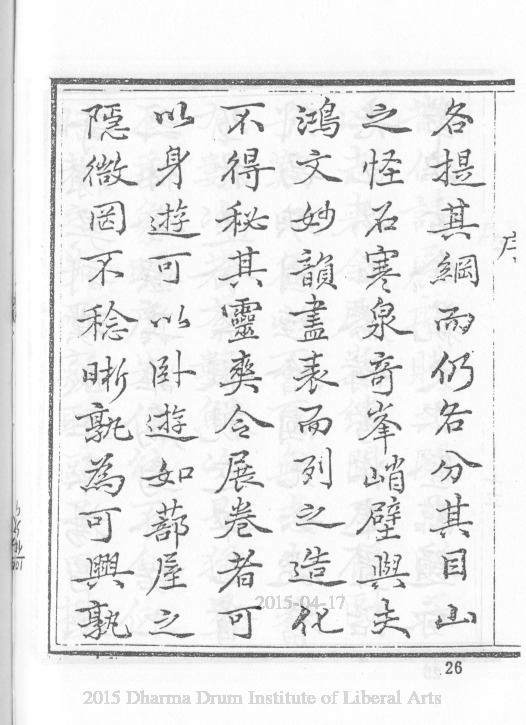 序
各提其綱而仍各分其目山
之怪石寒泉奇峯峭壁與夫
鴻文妙韻盡表而列之造化
不得秘其靈奧令展卷者可
以身遊可以卧遊如蔀屋之
隱微罔不稔晰孰為可興孰
26
2015-04-17
2015 Dharma Drum Institute of Liberal Arts